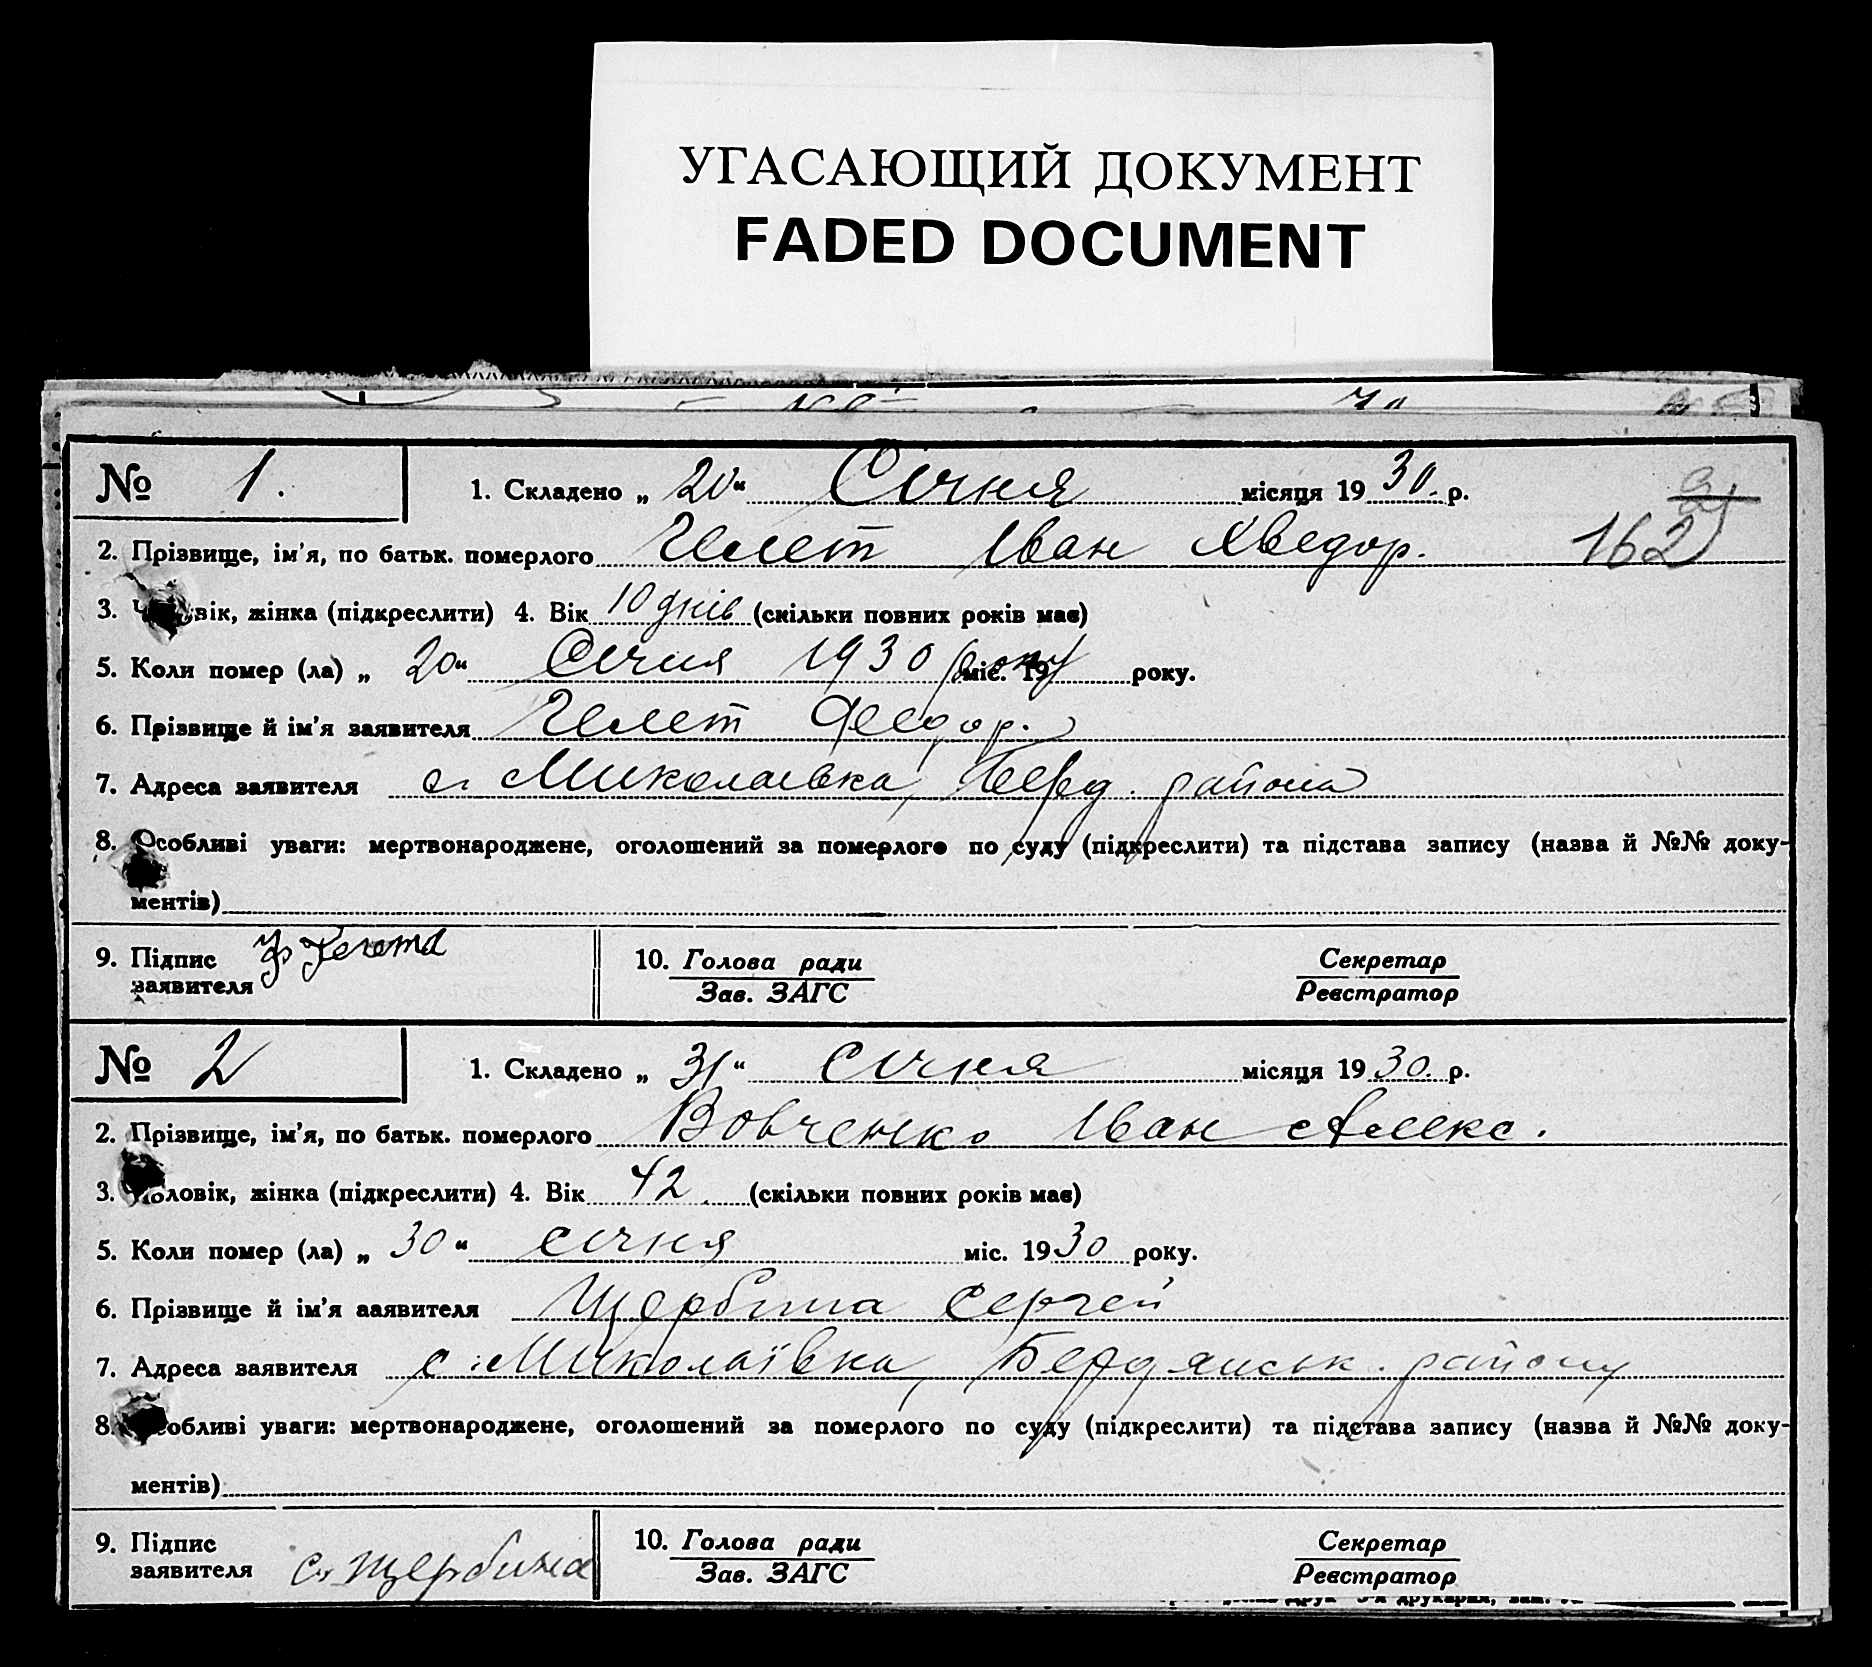 УГАСАЮЩИЙ ДОКУМЕНТ
FADED DOCUMENT
№ 1. 1. Складено „ 20 “ Січня місяця 1930. р.
2. Прізвище, ім'я, по батьк. померлого Гелет Іван Хведор. 162
3. вік, жінка (підкреслити) 4. Вік 10 днів (скільки повних років має)
5. Коли помер (ла) „ 20 “ Січня 1930 року міс. 19 року.
6. Прізвище й ім'я заявителя Гелет Феодор.
7. Адреса заявителя с. Миколаевка, Берд. района
8. Особливі уваги: мертвонароджене, оголошений за померлого по суду (підкреслити) та підстава запису (назва й №№ доку-
ментів)
9. Підпис заявителя 10. Голова ради Секретар
Зав. ЗАГС Реєстратор
№ 2 1. Складено „ 31 “ Січня місяця 1930. р.
2. Прізвище, ім'я, по батьк. померлого Вовченко Іван Алекс.
3. Чоловік, жінка (підкреслити) 4. Вік 42. (скільки повних років має)
5. Коли помер (ла) „ 30 “ січня міс. 1930 року.
6. Прізвище й ім'я заявителя Щербина Сергей
7. Адреса заявителя с. Миколаївка, Бердянськ. району
8. Особливі уваги: мертвонароджене, оголошений за померлого по суду (підкреслити) та підстава запису (назва й №№ доку-
ментів)
9. Підпис заявителя С. Щербина 10. Голова ради Секретар
Зав. ЗАГС Реєстратор